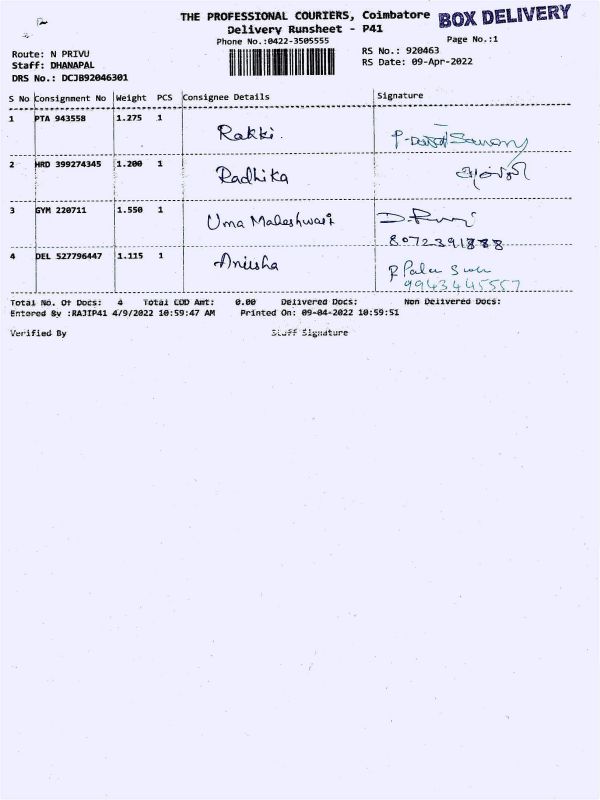 THE PROFESSIONAL COURIERS, Coimbatore BOX DELIVERY
Delivery Runsheet - P41
Phone No.:0422-3505555 Page No.:1
Route: N PRIVU RS No.: 920463
Staff: DHANAPAL RS Date: 09-Apr-2022
DRS No.: DCJB92046301
S No Consignment No Weight PCS Consignee Details Signature
1 PTA 943558 1.275 1 Rakki.
2 HRD 399274345 1.200 1 Radhika
3 GYM 220711 1.550 1 Uma Maheshwari
8072391888
4 DEL 527796447 1.115 1 Anusha
9943445557
Total No. Of Docs: 4 Total COD Amt: 0.00 Delivered Docs: Non Delivered Docs:
Entered By :RAJIP41 4/9/2022 10:59:47 AM Printed On: 09-04-2022 10:59:51
Verified By Staff Signature